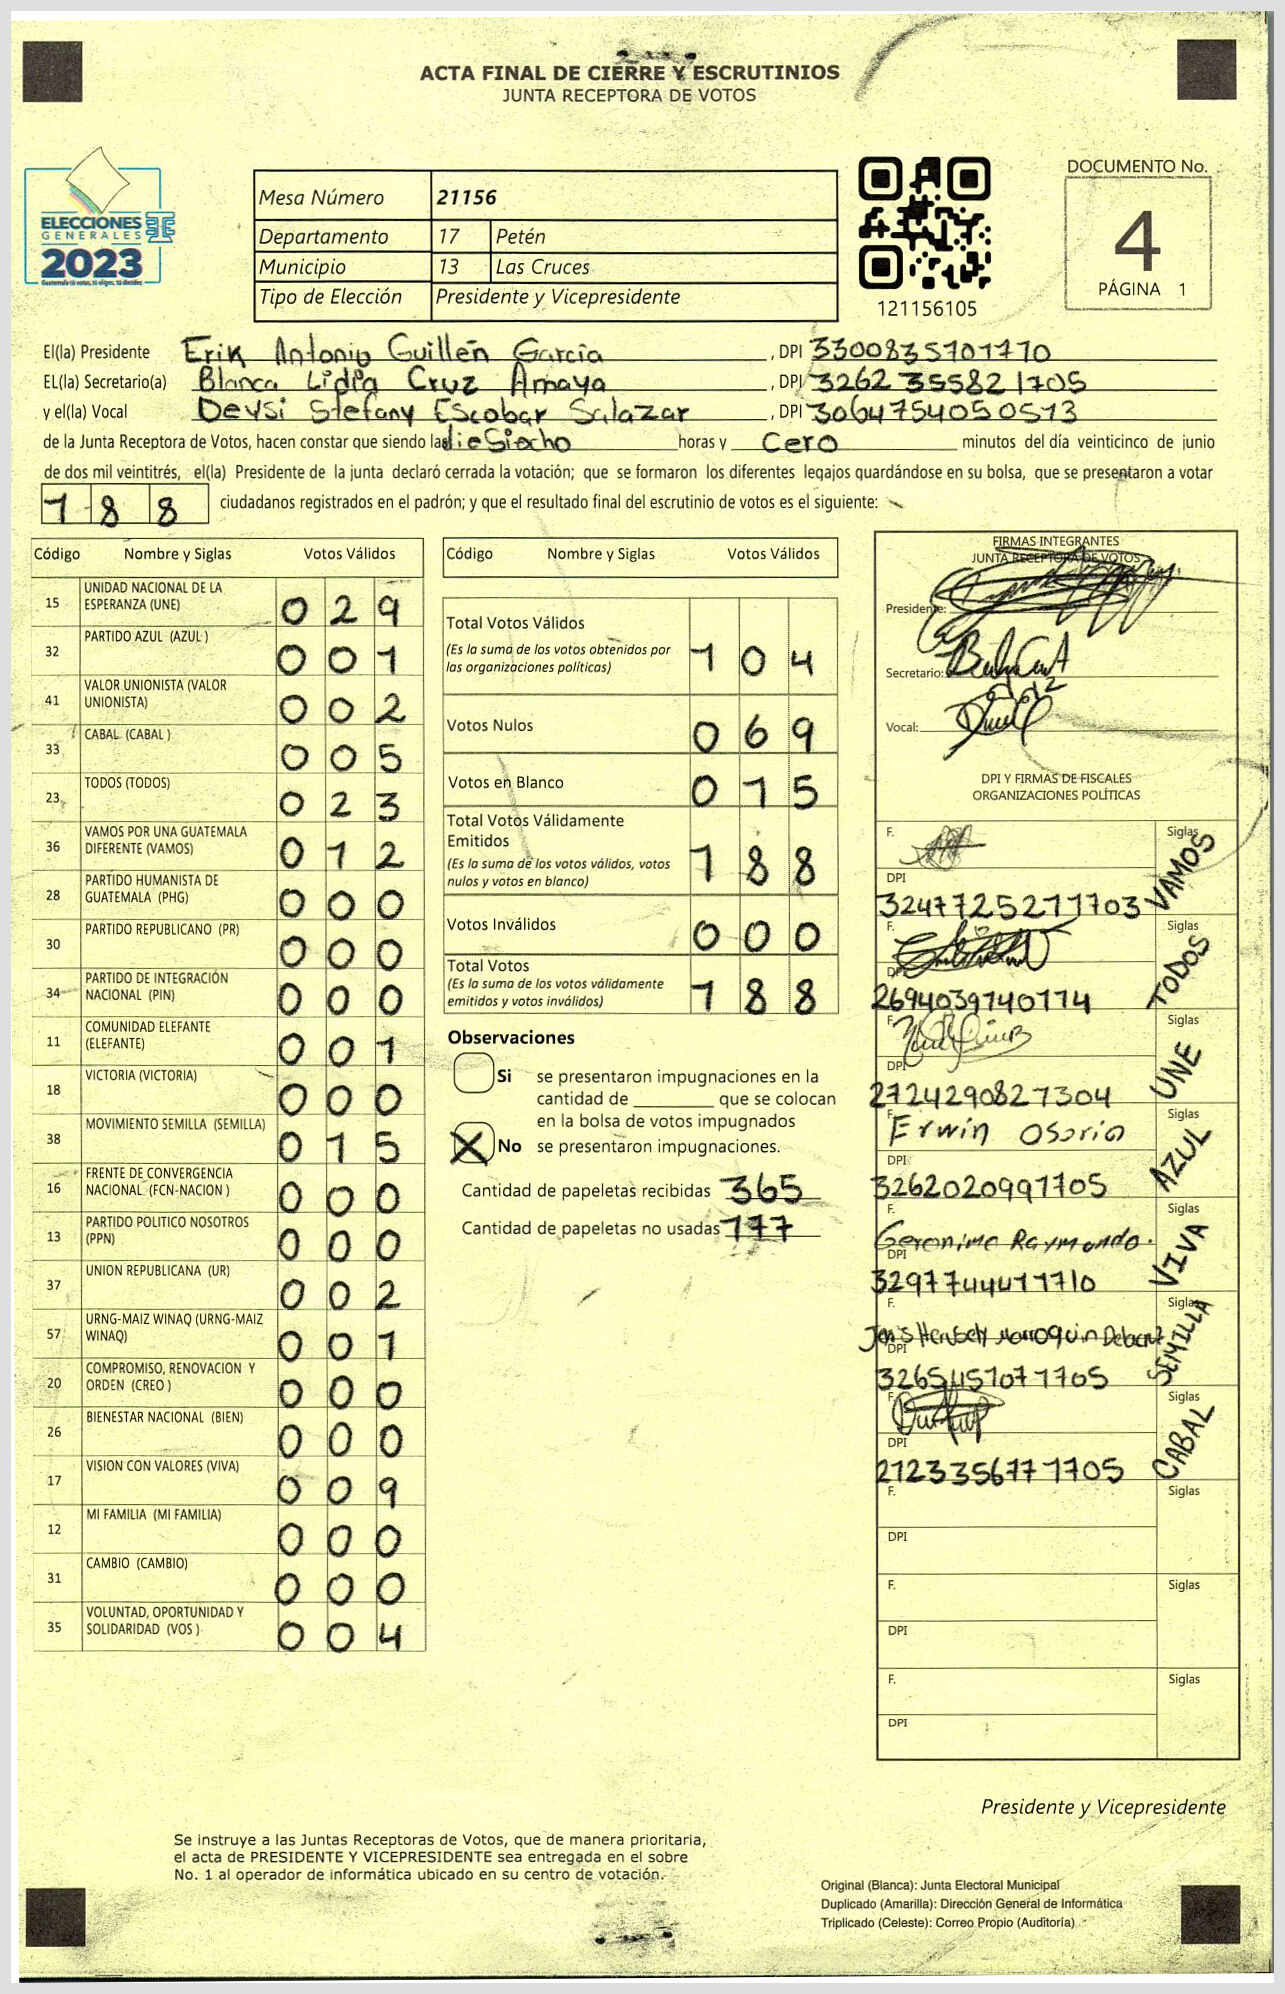 ACTA FINAL DE CIERRE Y ESCRUTINIOS
JUNTA RECEPTORA DE VOTOS
ELECCIONES
GENERALES
2023
Mesa Número 21156
Departamento 17 Petén
Municipio 13 Las Cruces
Tipo de Elección Presidente y Vicepresidente
121156105
DOCUMENTO No.
4
PÁGINA 1
El(la) Presidente Erik Antonio Guillén García , DPI 3300835701710
EL(la) Secretario(a) Blanca Lidia Cruz Amaya , DPI 3262355821705
y el(la) Vocal Deysi Stefany Escobar Salazar , DPI 3064754050513
de la Junta Receptora de Votos, hacen constar que siendo las dieSiocho horas y Cero minutos del día veinticinco de junio
de dos mil veintitrés, el(la) Presidente de la junta declaró cerrada la votación; que se formaron los diferentes legajos quardándose en su bolsa, que se presentaron a votar
188 ciudadanos registrados en el padrón; y que el resultado final del escrutinio de votos es el siguiente:
Código Nombre y Siglas Votos Válidos
15 UNIDAD NACIONAL DE LA ESPERANZA (UNE) 029
32 PARTIDO AZUL (AZUL ) 001
41 VALOR UNIONISTA (VALOR UNIONISTA) 002
33 CABAL (CABAL ) 005
23 TODOS (TODOS) 023
36 VAMOS POR UNA GUATEMALA DIFERENTE (VAMOS) 012
28 PARTIDO HUMANISTA DE GUATEMALA (PHG) 000
30 PARTIDO REPUBLICANO (PR) 000
34 PARTIDO DE INTEGRACIÓN NACIONAL (PIN) 000
11 COMUNIDAD ELEFANTE (ELEFANTE) 001
18 VICTORIA (VICTORIA) 000
38 MOVIMIENTO SEMILLA (SEMILLA) 015
16 FRENTE DE CONVERGENCIA NACIONAL (FCN-NACION ) 000
13 PARTIDO POLITICO NOSOTROS (PPN) 000
37 UNION REPUBLICANA (UR) 002
57 URNG-MAIZ WINAQ (URNG-MAIZ WINAQ) 001
20 COMPROMISO, RENOVACION Y ORDEN (CREO ) 000
26 BIENESTAR NACIONAL (BIEN) 000
17 VISION CON VALORES (VIVA) 009
12 MI FAMILIA (MI FAMILIA) 000
31 CAMBIO (CAMBIO) 000
35 VOLUNTAD, OPORTUNIDAD Y SOLIDARIDAD (VOS ) 004
Código Nombre y Siglas Votos Válidos
Total Votos Válidos 104
(Es la suma de los votos obtenidos por
las organizaciones políticas)
Votos Nulos 069
Votos en Blanco 015
Total Votos Válidamente
Emitidos 188
(Es la suma de los votos válidos, votos
nulos y votos en blanco)
Votos Inválidos 000
Total Votos 188
(Es la suma de los votos válidamente
emitidos y votos inválidos)
Observaciones
Si se presentaron impugnaciones en la
cantidad de ________ que se colocan
en la bolsa de votos impugnados
X No se presentaron impugnaciones.
Cantidad de papeletas recibidas 365
Cantidad de papeletas no usadas 177
FIRMAS INTEGRANTES
JUNTA RECEPTORA DE VOTOS
Presidente:
Secretario:
Vocal:
DPI Y FIRMAS DE FISCALES
ORGANIZACIONES POLÍTICAS
F. Siglas VAMOS
DPI
3247725271703
F. Siglas TODOS
DPI
2694039740174
F. Siglas UNE
DPI
2724290827304
F. Erwin Osorio Siglas AZUL
DPI
3262020991705
F. Geronimo Raymundo. Siglas VIVA
DPI
3297744471710
F. Marroquin Siglas SEMILLA
DPI
F. Siglas CABAL
DPI
2123356771705
F. Siglas
DPI
F. Siglas
DPI
F. Siglas
DPI
Presidente y Vicepresidente
Se instruye a las Juntas Receptoras de Votos, que de manera prioritaria,
el acta de PRESIDENTE Y VICEPRESIDENTE sea entregada en el sobre
No. 1 al operador de informática ubicado en su centro de votación.
Original (Blanca): Junta Electoral Municipal
Duplicado (Amarilla): Dirección General de Informática
Triplicado (Celeste): Correo Propio (Auditoría)